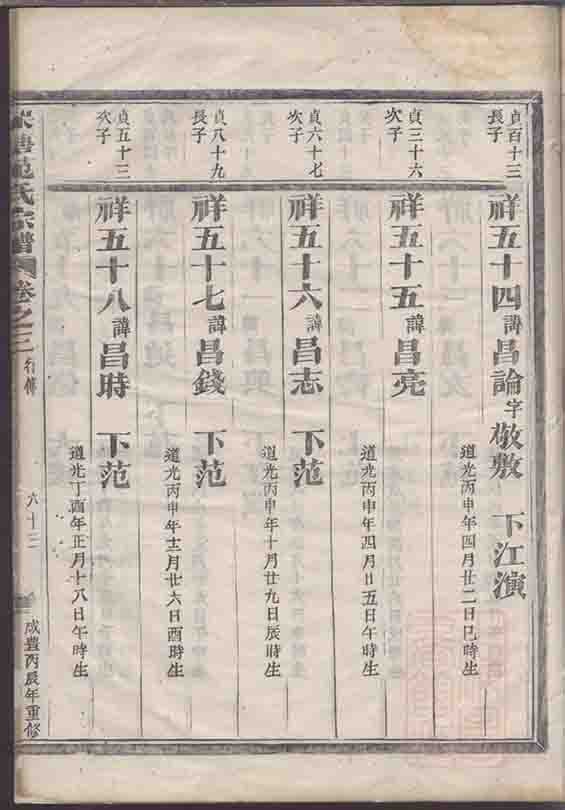 貞百十三
長子
祥五十四諱昌論字敬敷 下江演
道光丙申年四月廿二日巳時生
貞三十六
次子
祥五十五諱昌亮
道光丙申年四月廿五日午時生
貞六十七
次子
祥五十六諱昌志 下范
道光丙申年十月廿九日辰時生
貞八十九
長子
祥五十七諱昌錢 下范
道光丙申年十二月廿六日酉時生
貞五十三
次子
祥五十八諱昌時 下范
道光丁酉年正月十八日午時生
范氏宗譜 卷之三 行傳 六十三 咸豐丙辰年重修